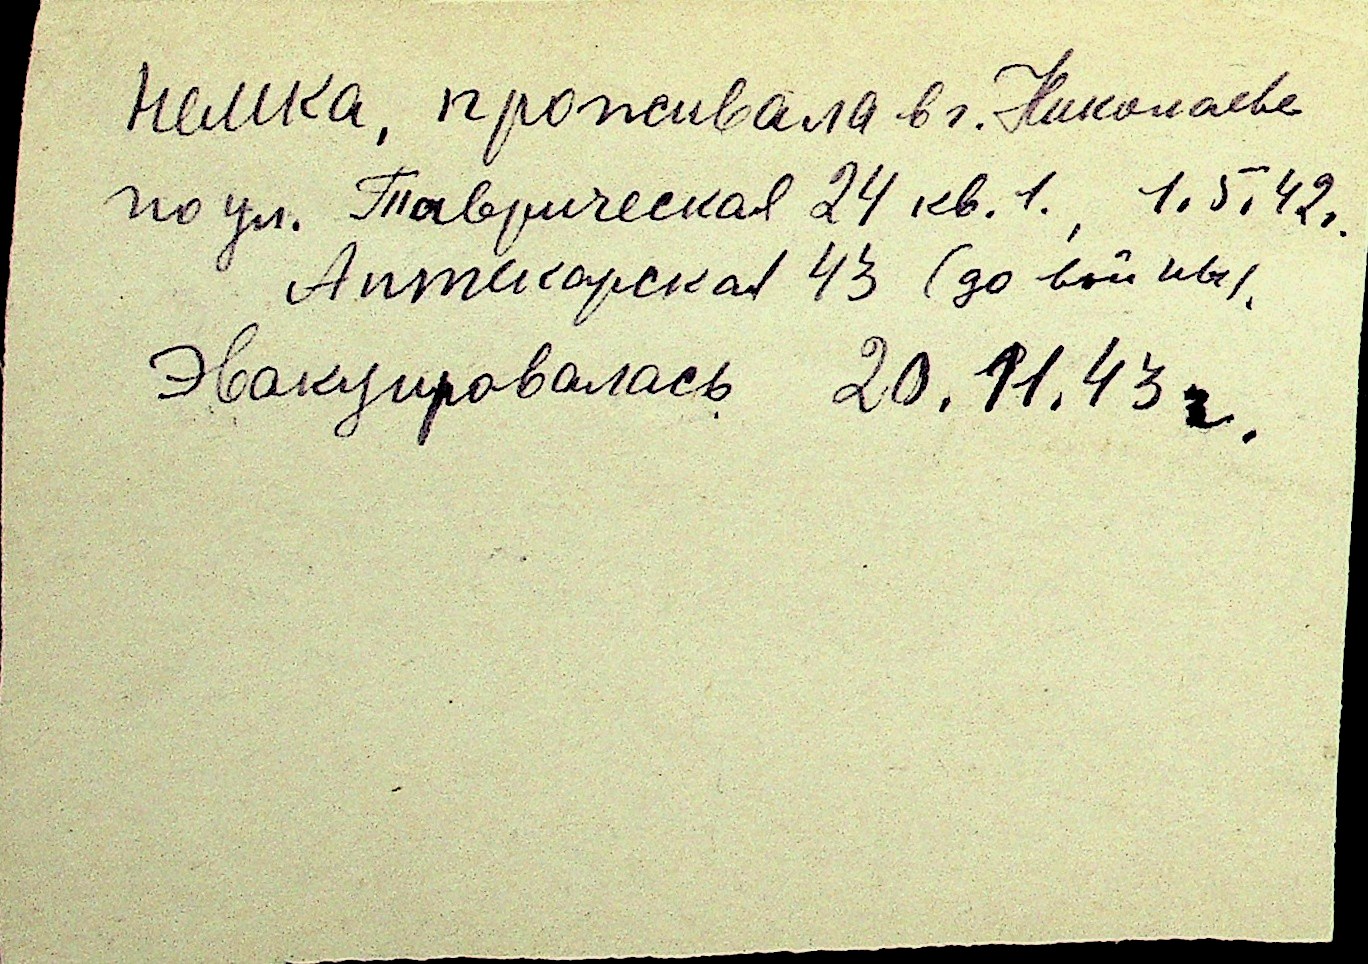 немка, проживала в г. Николаеве
по ул. Таврическая 24 кв. 1., 1.5.42г.
Аптекарская 43 (до войны).
Эвакуировалась 20.11.43 г.